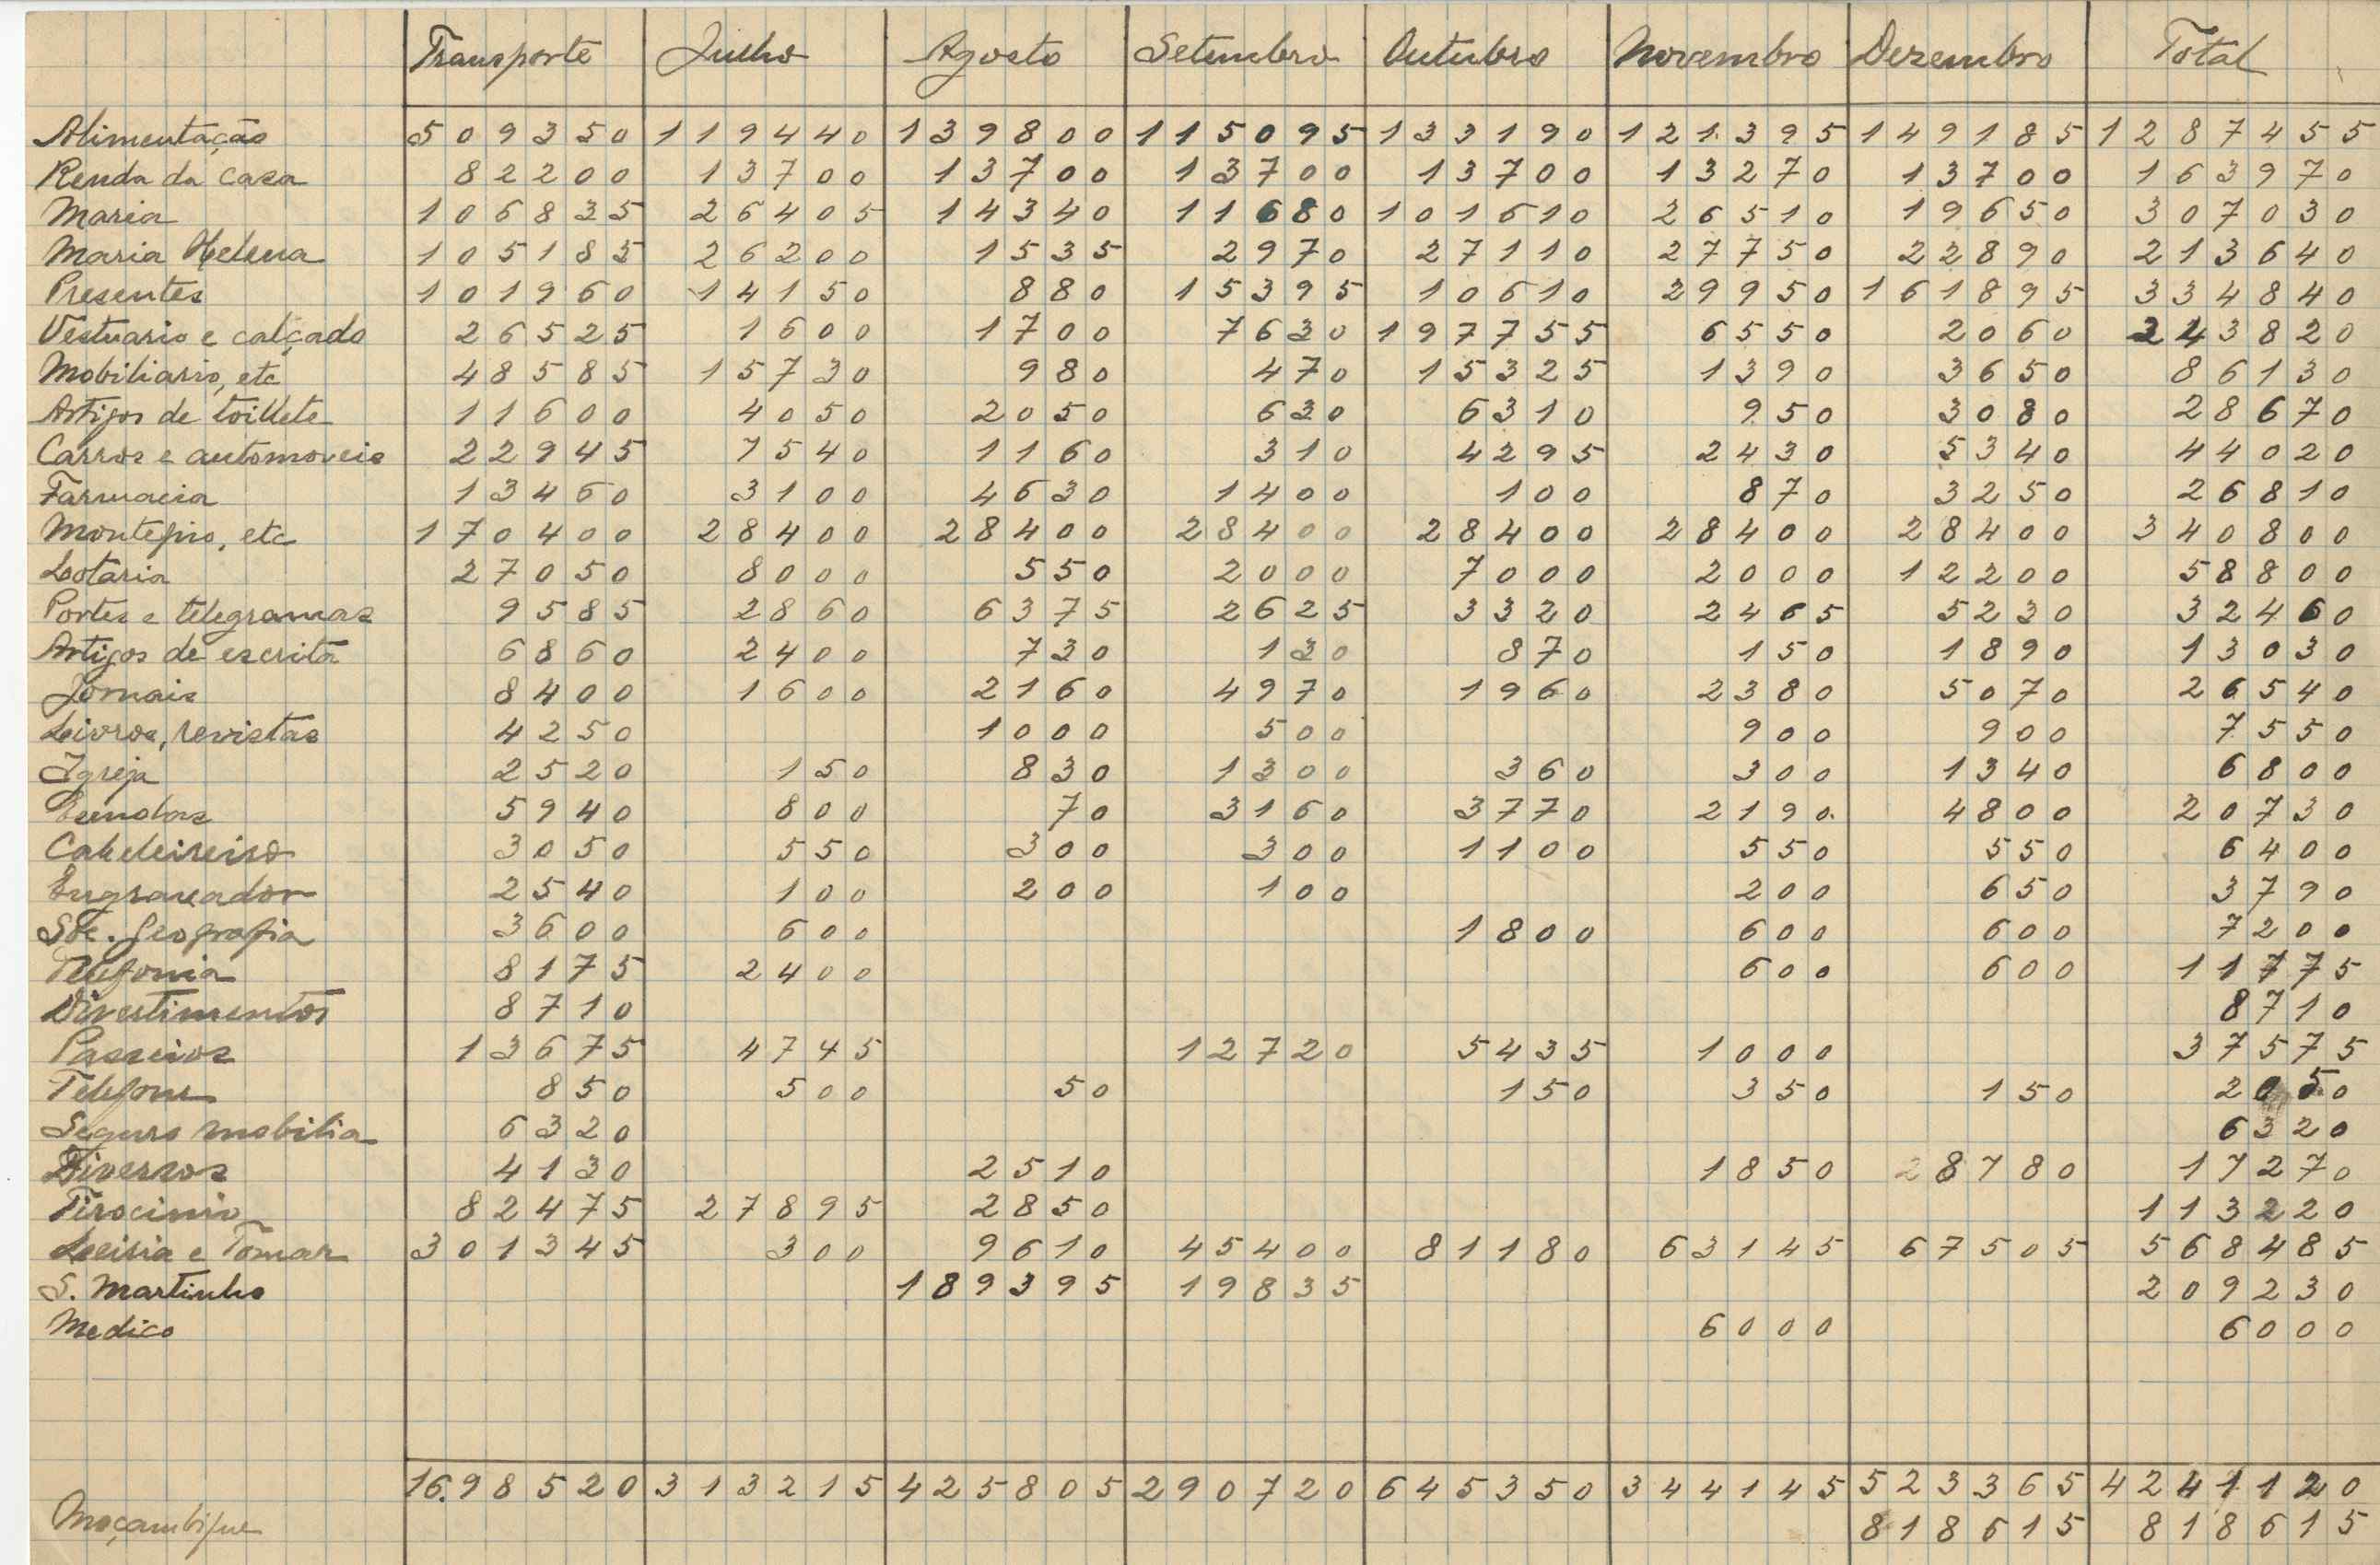 Transporte Julho Agosto Setembro Outubro Novembro Dezembro Total
Alimentação 509350 119440 139800 115095 133190 121395 149185 1287455
Renda da casa 82200 13700 13700 13700 13700 13270 13700 163970
Maria 106835 26405 14340 11680 101610 26510 19650 307030
Maria Helena 105185 26200 1535 2970 27110 27750 22890 213640
Presentes 101960 14150 880 15395 10610 29950 161895 334840
Vestuario e calçado 26525 1600 1700 7630 197755 6550 2060 243820
Mobiliario, etc 48585 15730 980 470 15325 1390 3650 86130
Artigos de toillete 11600 4050 2050 630 6310 950 3080 28670
Carros e automoveis 22945 7540 1160 310 4295 2430 5340 44020
Farmacia 13460 3100 4630 1400 100 870 3250 26810
Montepio, etc 170400 28400 28400 28400 28400 28400 28400 340800
Lotaria 27050 8000 550 2000 7000 2000 12200 58800
Portes e telegramas 9585 2860 6375 2625 3320 2465 5230 32460
Artigos de escrita 6860 2400 730 130 870 150 1890 13030
Jornais 8400 1600 2160 4970 1960 2380 5070 26540
Livros, revistas 4250 1000 500 900 900 7550
Igreja 2520 150 830 1300 360 300 1340 6800
5940 800 70 3160 3770 2190 4800 20730
Cabeleireiro 3050 550 300 300 1100 550 550 6400
Engraxador 2540 100 200 100 200 650 3790
Soc. Geografia 3600 600 1800 600 600 7200
Telefonia 8175 2400 600 600 11775
Divertimentos 8710 8710
Passeios 13675 4745 12720 5435 1000 37575
Telefone 850 500 50 150 350 150 2050
Seguro mobilia 6320 6320
Diversos 4130 2510 1850 28780 17270
Tirocinio 82475 27895 2850 113220
Leiria e Tomar 301345 300 9610 45400 81180 63145 67505 568485
S. Martinho 189395 19835 209230
Medico 6000 6000
16.98520 313215 425805 290720 645350 344145 523365 4241120
Moçambique 818615 818615